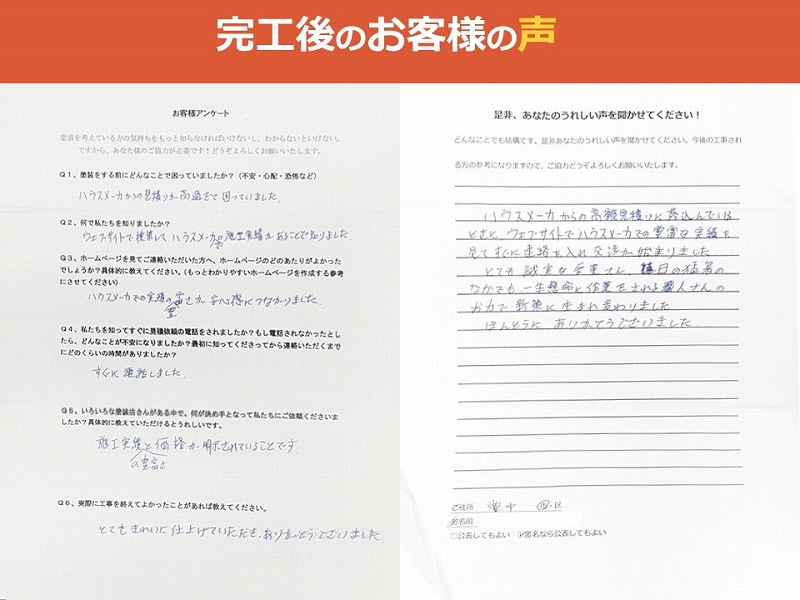 完工後のお客様の声
お客様アンケート
塗装を考えている方の気持ちをもっと知らなければいけないし、わからないといけない。
ですから、あなた様のご協力が必要です！どうぞよろしくお願いいたします。
Q1、塗装をする前にどんなことで困っていましたか？（不安・心配・恐怖など）
ハウスメーカからの見積りが高過ぎて困っていました。
Q2、何で私たちを知りましたか？
ウェブサイトで検索して、ハウスメーカの施工実績があることで知りました。
Q3、ホームページを見てご連絡いただいた方へ、ホームページのどのあたりがよかった
でしょうか？具体的に教えてください。（もっとわかりやすいホームページを作成する参考
にさせてください）
ハウスメーカでの実績の豊富さが安心感につながりました。
Q4、私たちを知ってすぐに見積依頼の電話をされましたか？もし電話されなかったとし
たら、どんなことが不安になりましたか？最初に知ってくださってから連絡いただくまで
にどのくらいの時間がありましたか？
すぐに連絡しました
Q5、いろいろな塗装店さんがある中で、何が決め手となって私たちにご依頼くださいま
したか？具体的に教えていただけるとうれしいです。
施工実績の豊富さと価格が明示されていることです
Q6、実際に工事を終えてよかったことがあれば教えてください。
とてもきれいに仕上げていただき、ありがとうございました
是非、あなたのうれしい声を聞かせてください！
どんなことでも結構です。是非あなたのうれしい声を聞かせてください。今後の工事され
る方の参考になりますので、ご協力どうぞよろしくお願いいたします。
ハウスメーカからの高額見積りに落込んでいる
ときに、ウェブサイトでハウスメーカでの豊富な実績を
見てすぐに連絡を入れ交渉が始まりました
とても誠実な営業さん、連日の猛暑の
なかでも、一生懸命に作業をされる職人さんの
お力で新築に生まれ変わりました
ほんとうにありがとうございました
ご住所 豊中 市・区
お名前
□公表してもよい ☑匿名なら公表してもよい